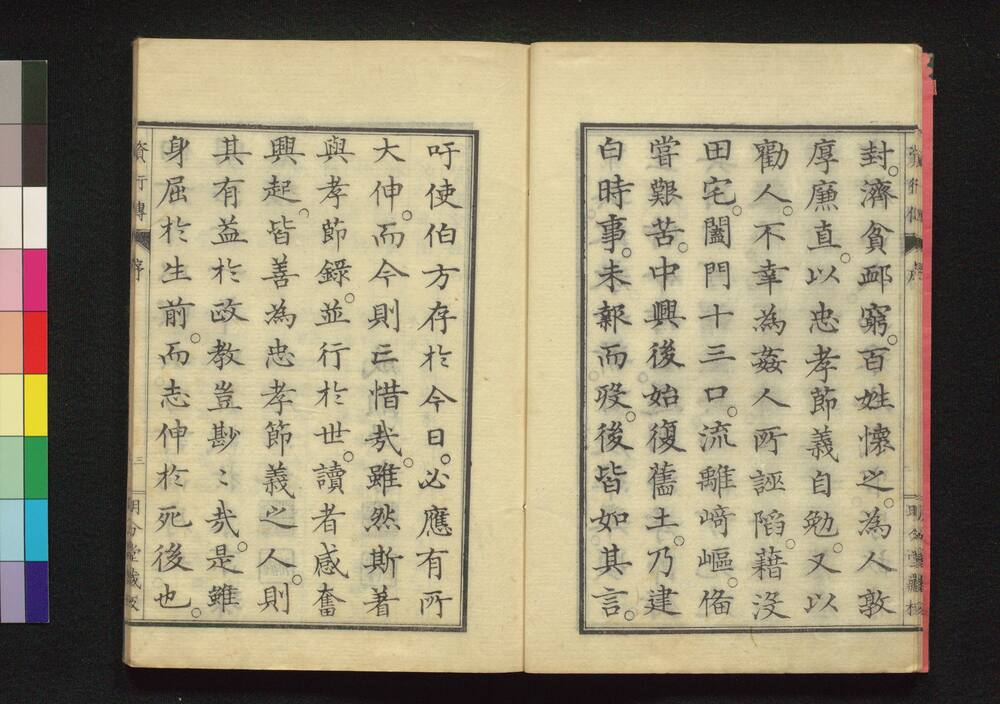 封濟貧䘏窮百姓懷之為人敦
厚廉直以忠孝節義自勉又以
勸人不幸為姦人所誣陷藉沒
田宅闔門十三口流離﨑嶇偹
嘗艱苦中興後始復舊土乃建
白時事未報而歿後皆如其言
吁使伯方存於今日必應有所
大伸而今則亡惜㦲雖然斯著
與孝節錄並行於世讀者感奮
興起皆善為忠孝節義之人則
其有益於政教豈尠〻㦲是雖
身屈於生前而志伸於死後也
資行傳
序
三
明分堂藏板